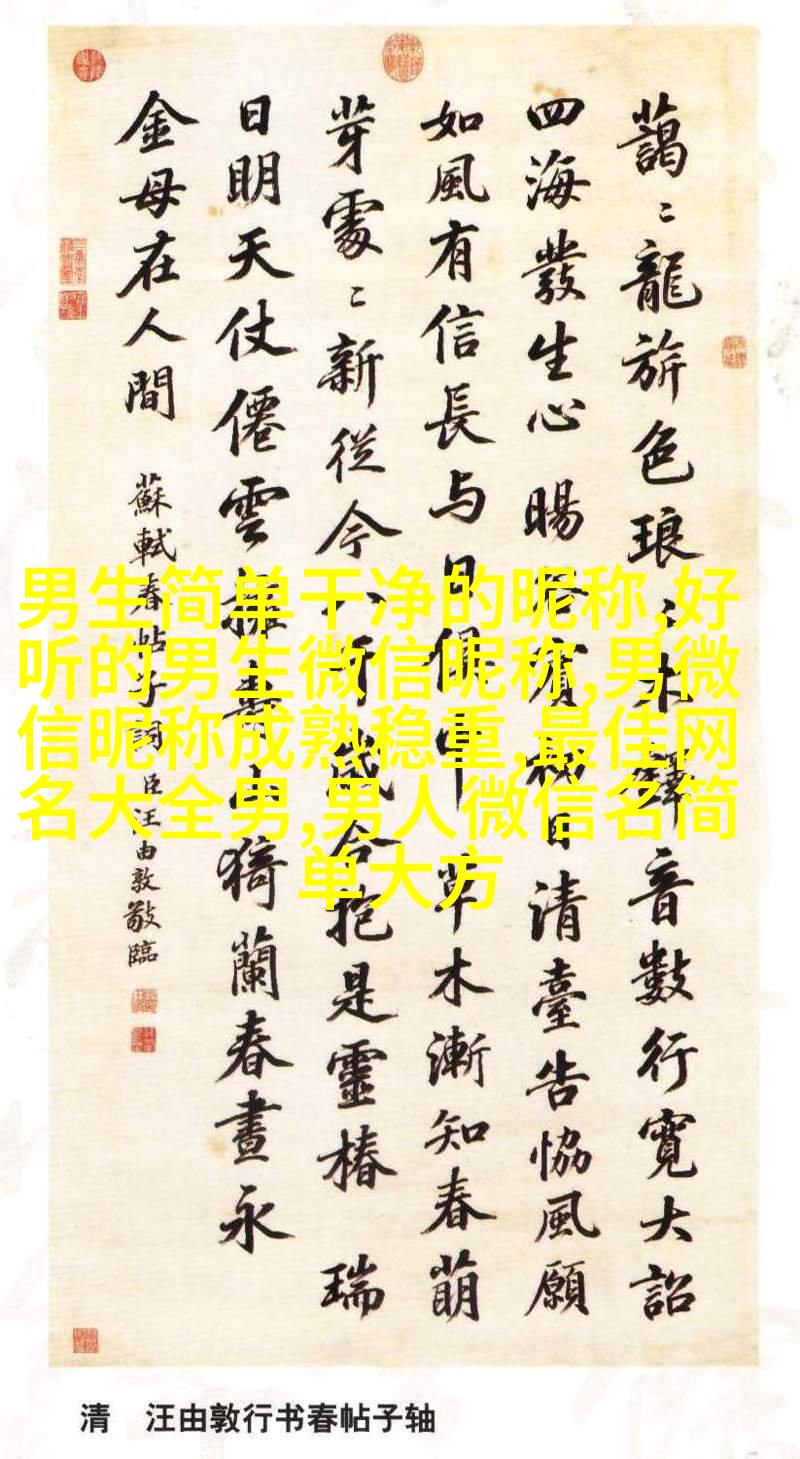 藹〻龍旂色琅〻木鐸音數行寬大詔
四海發生心 暘谷賓初日清臺告協風願
如風有信長与日俱中草木漸知春萌
芽處〻新從今八千歲合抱是靈椿 瑞
日明天仗僊雲擁壽山猗蘭春晝永
金母在人間 蘇軾春帖子詞 臣汪由敦敬臨
男生简单干净的昵称,好
听的男生微信昵称,男微
信昵称成熟稳重,最佳网
名大全男,男人微信名简
单大方
清 汪由敦行书春帖子轴